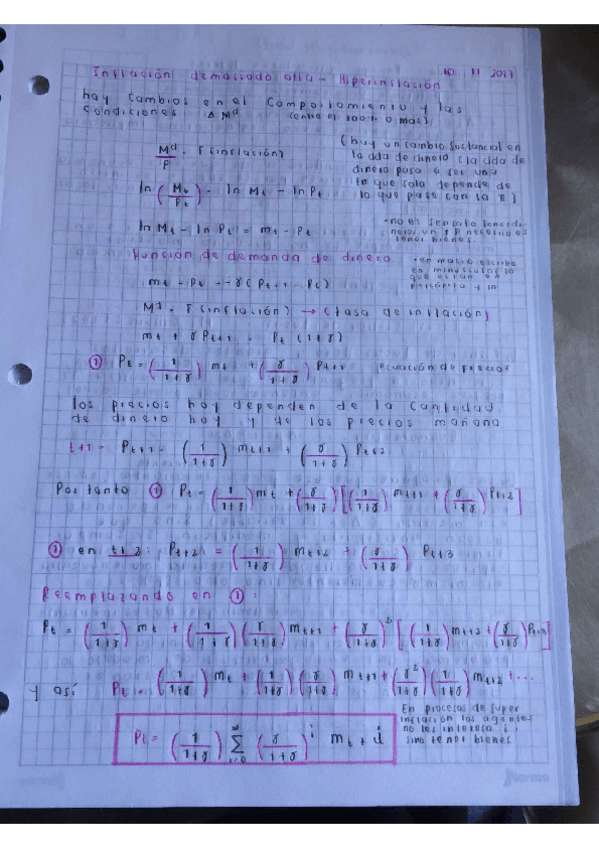 Inflación demasiado alta - Hiperinflación 10 11 2017
hay cambios en el comportamiento y las
condiciones. Δ Md (entre el 100% o más)
Md/P = f(inflación)
(hay un cambio sustancial en
la dda de dinero (la dda de
dinero pasa a ser una
en que solo depende de
lo que pase con la π)
ln(Mt/Pt) = ln Mt - ln Pt
ln Mt - ln Pt = mt - Pt
-no es sensato tener
tener bienes.
Función de demanda de dinero
mt - Pt = -γ(Pt+1 - Pt)
-en macro escribe
en minusculas lo
Md = f(inflación) → (tasa de inflación)
mt + γPt+1 = Pt (1+γ)
① Pt = (1/1+γ) mt + (γ/1+γ) Pt+1 ecuación de precios
los precios hoy dependen de la cantidad
de dinero hoy y de los precios mañana
t+1 - Pt+1 = (1/1+γ) mt+1 + (γ/1+γ) Pt+2
Por tanto ① Pt = (1/1+γ) mt + (γ/1+γ) [(1/1+γ) mt+1 + (γ/1+γ) Pt+2]
① en t+2: Pt+2 = (1/1+γ) mt+2 + (γ/1+γ) Pt+3
Reemplazando en ①:
Pt = (1/1+γ) mt + (1/1+γ)(γ/1+γ) mt+1 + (γ/1+γ)² [(1/1+γ) mt+2 + (γ/1+γ) Pt+3]
y así Pt = (1/1+γ) mt + (1/1+γ)(γ/1+γ) mt+1 + (γ²/1+γ)(1/1+γ) mt+2 + ...
Pt = (1/1+γ) ∑ i=0 ∞ (γ/1+γ)^i mt+i
En procesos de super
inflación los agentes
no les interesa i,
sino tener bienes
norma